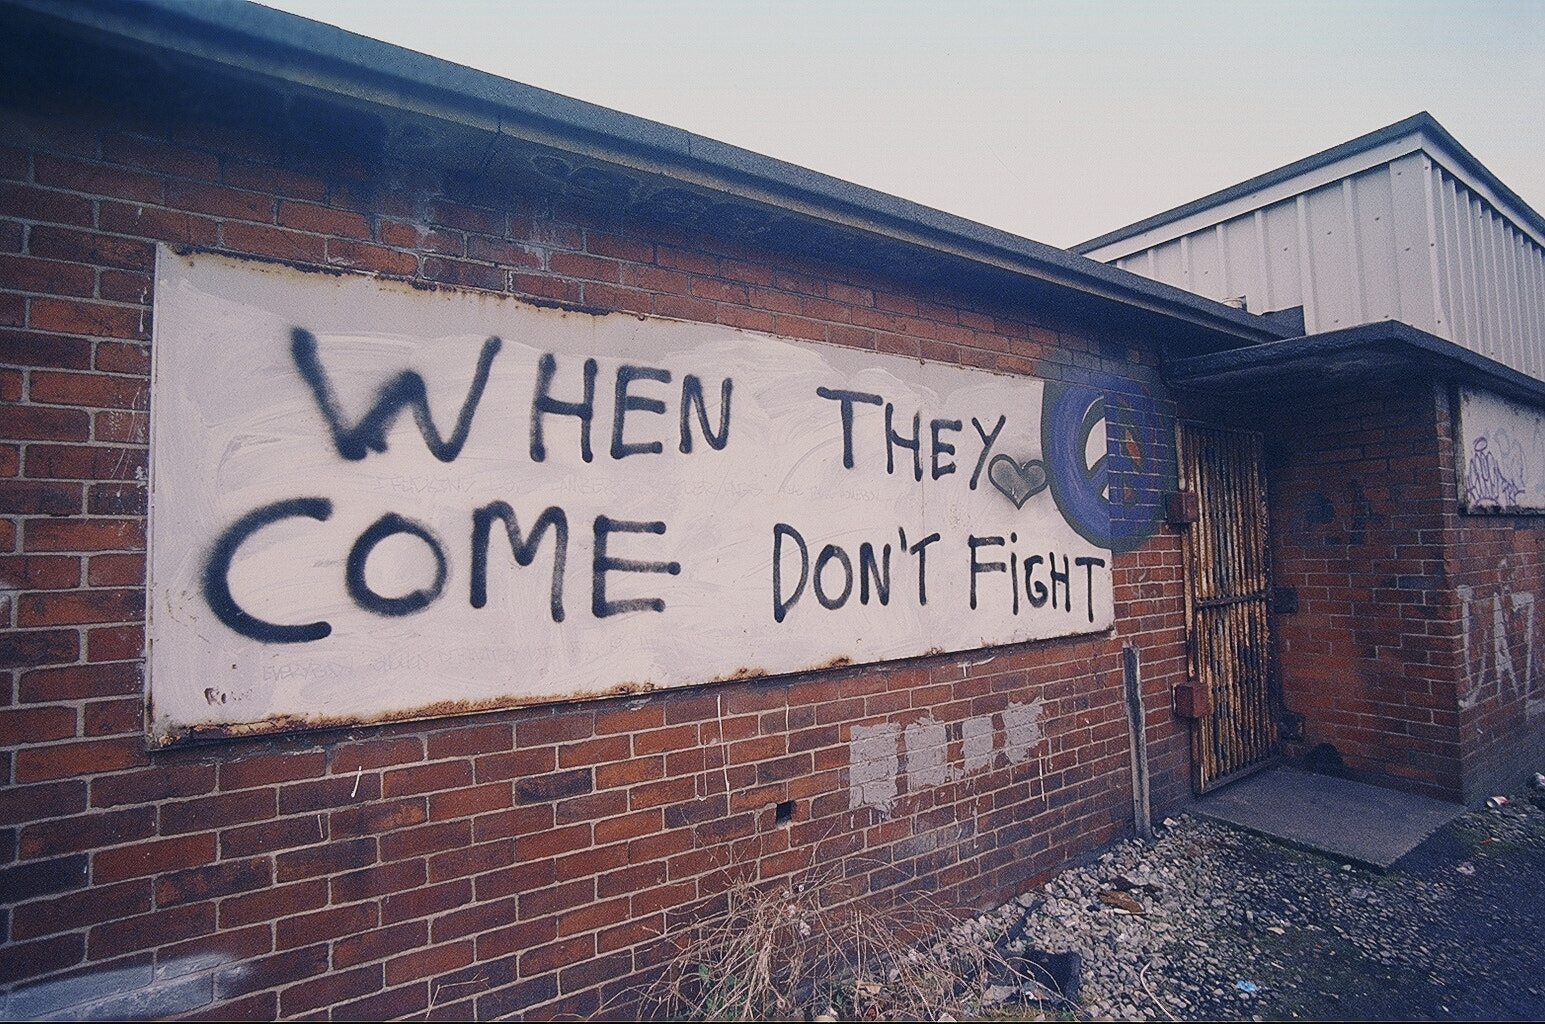 WHEN THEY
COME DON'T FIGHT